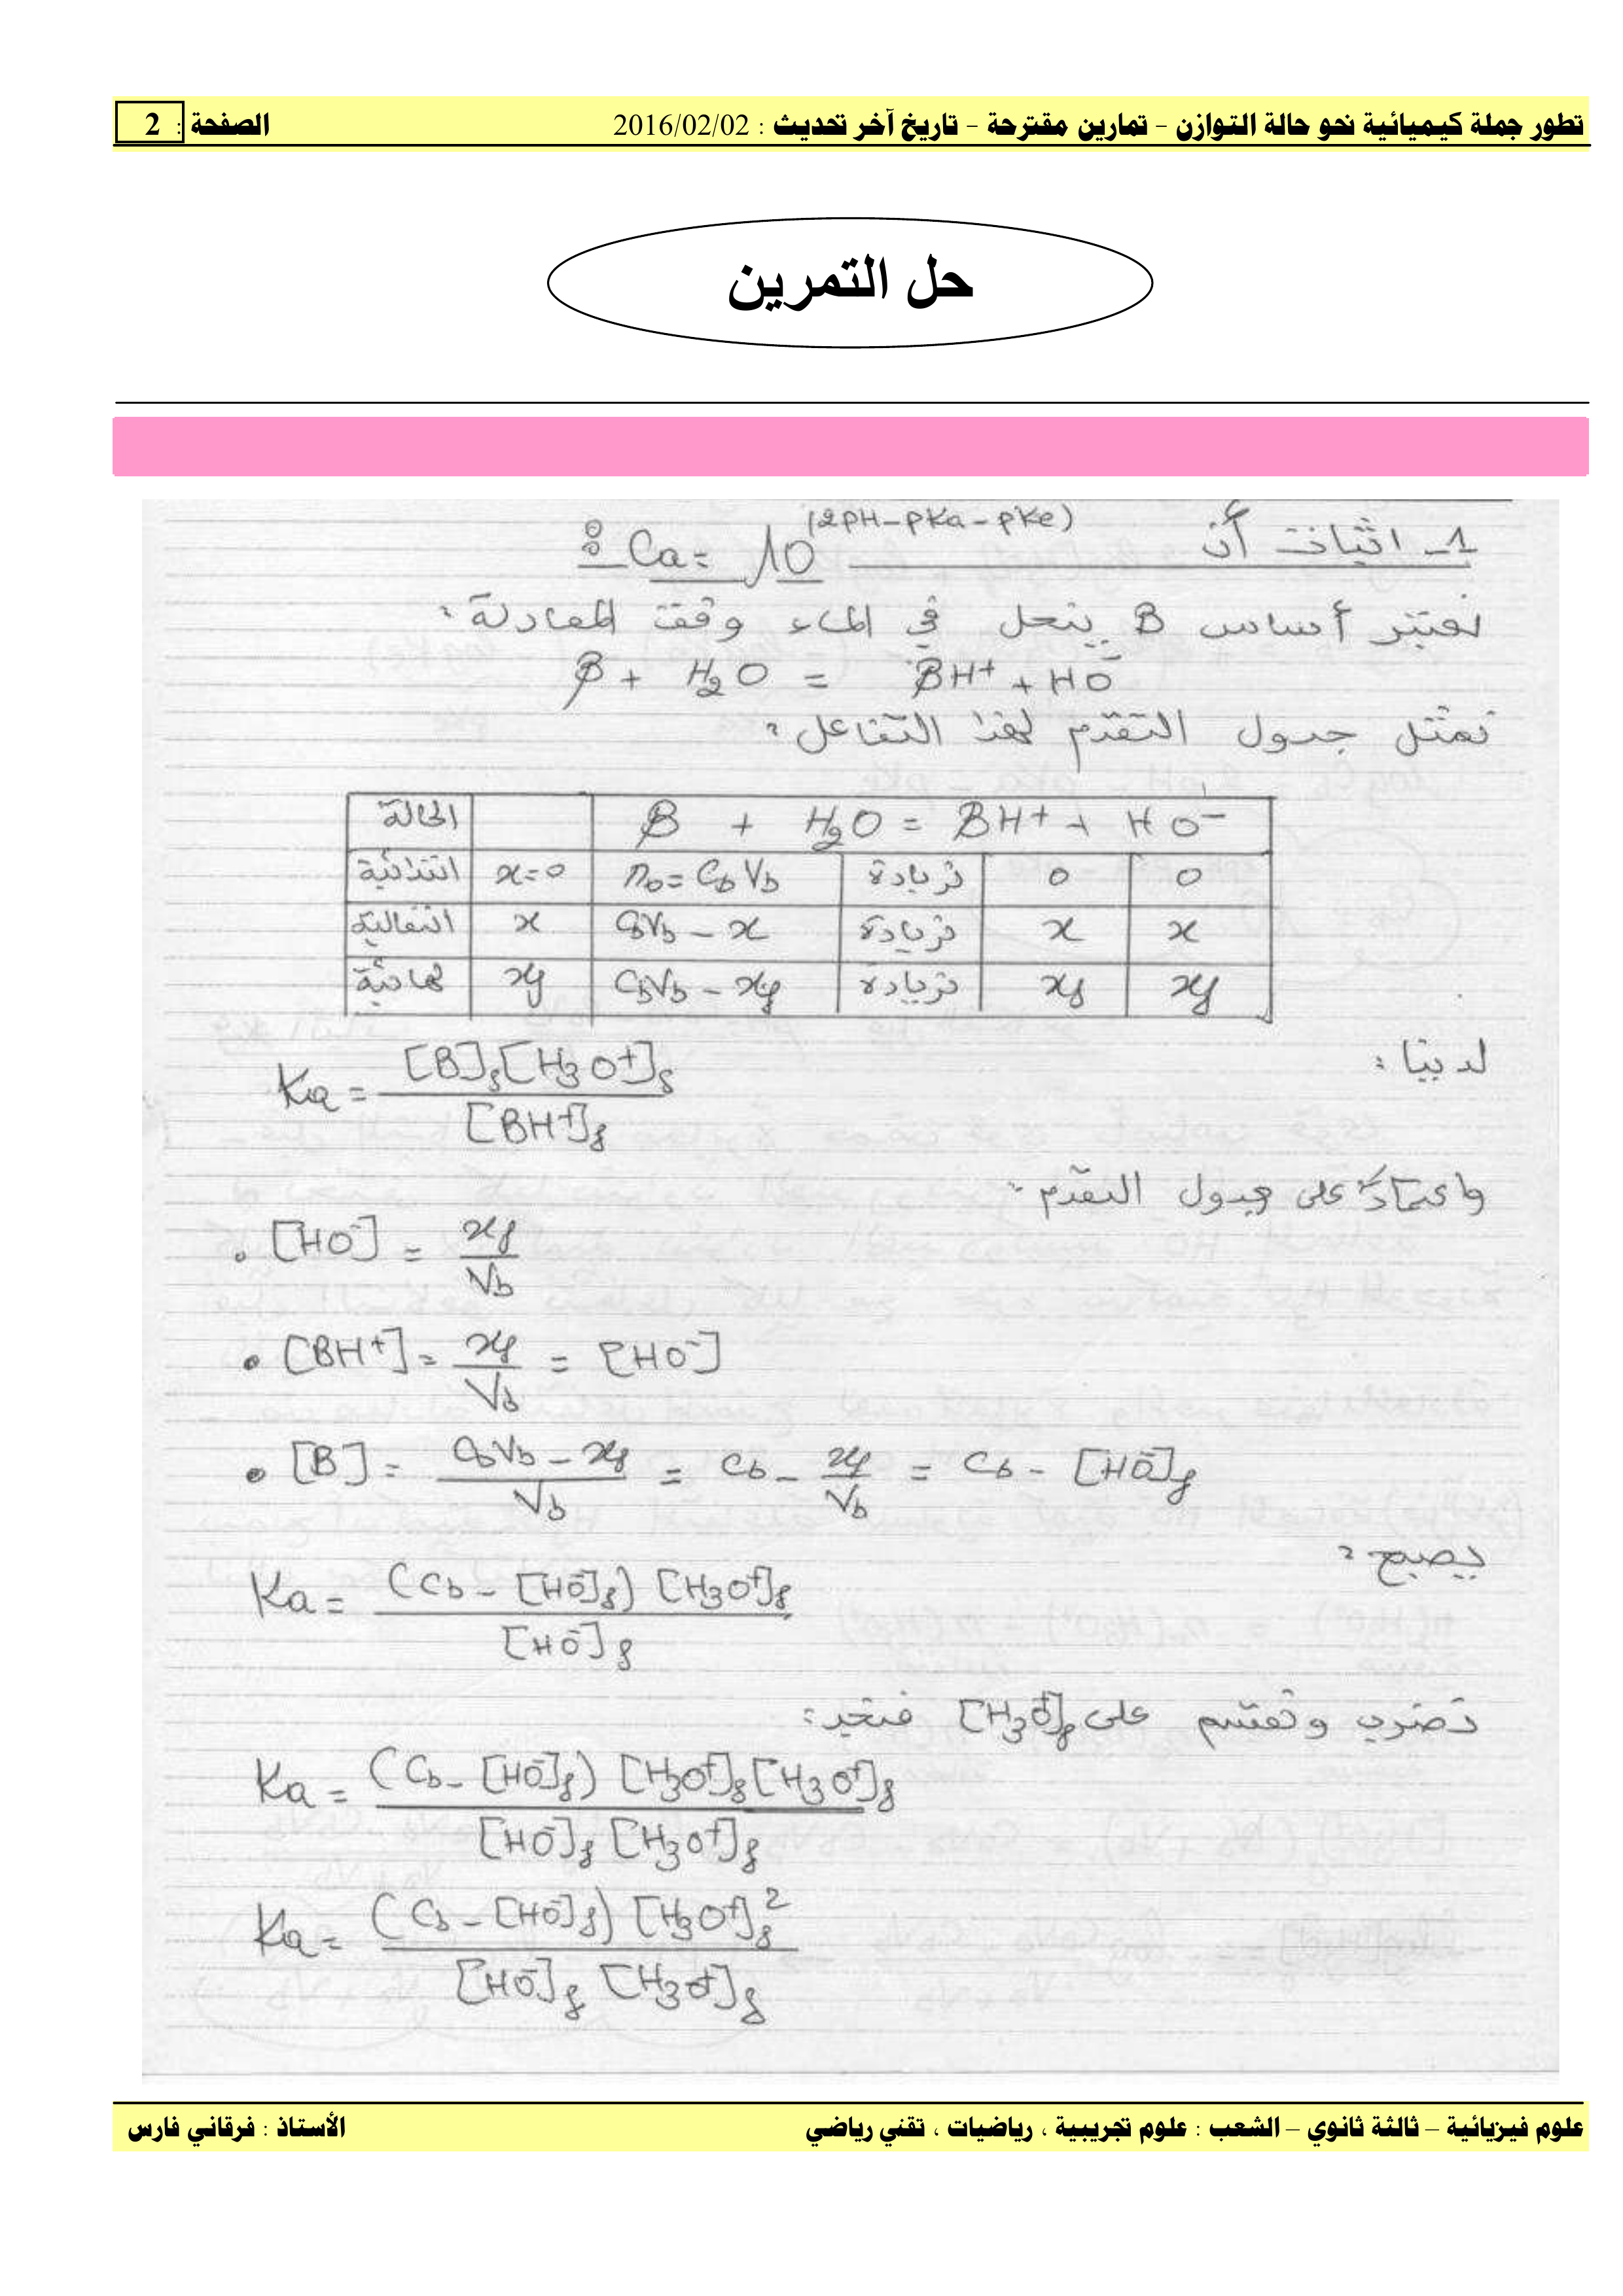 تطور جملة كيميائية نحو حالة التوازن – تمارين مقترحة – تاريخ آخر تحديث : 2016/02/02 الصفحة : 2
حل التمرين
1- اثبات أن Ca = 10^(2pH-pKa-pKe) :
نعتبر أساس B ينحل في الماء وفقت المعادلة :
B + H2O = BH+ + HO-
نمثل جدول التقدم لهذا التفاعل :
الحالة B + H2O = BH+ + HO-
ابتدائية x=0 n0=CbVb زيادة 0 0
انتقالية x CbVb - x زيادة x x
نهائية xf CbVb - xf زيادة xf xf
لدينا :
Ka = [B]f[H3O+]f / [BH+]f
واعتمادا على جدول التقدم :
• [HO-] = xf / Vb
• [BH+] = xf / Vb = [HO-]
• [B] = CbVb - xf / Vb = Cb - xf / Vb = Cb - [HO-]f
يصبح :
Ka = (Cb - [HO-]f) [H3O+]f / [HO-]f
نضرب ونقسم على [H3O+]f فنجد :
Ka = (Cb - [HO-]f) [H3O+]f [H3O+]f / [HO-]f [H3O+]f
Ka = (Cb - [HO-]f) [H3O+]f² / [HO-]f [H3O+]f
علوم فيزيائية – ثالثة ثانوي – الشعب : علوم تجريبية ، رياضيات ، تقني رياضي الأستاذ : فرقاني فارس